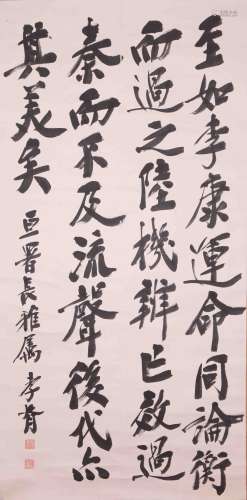 至如李康運命同論衡
而過之陸機辨亡效過
秦而不及流聲後代亦
其美矣
亞署長雅屬 李肖